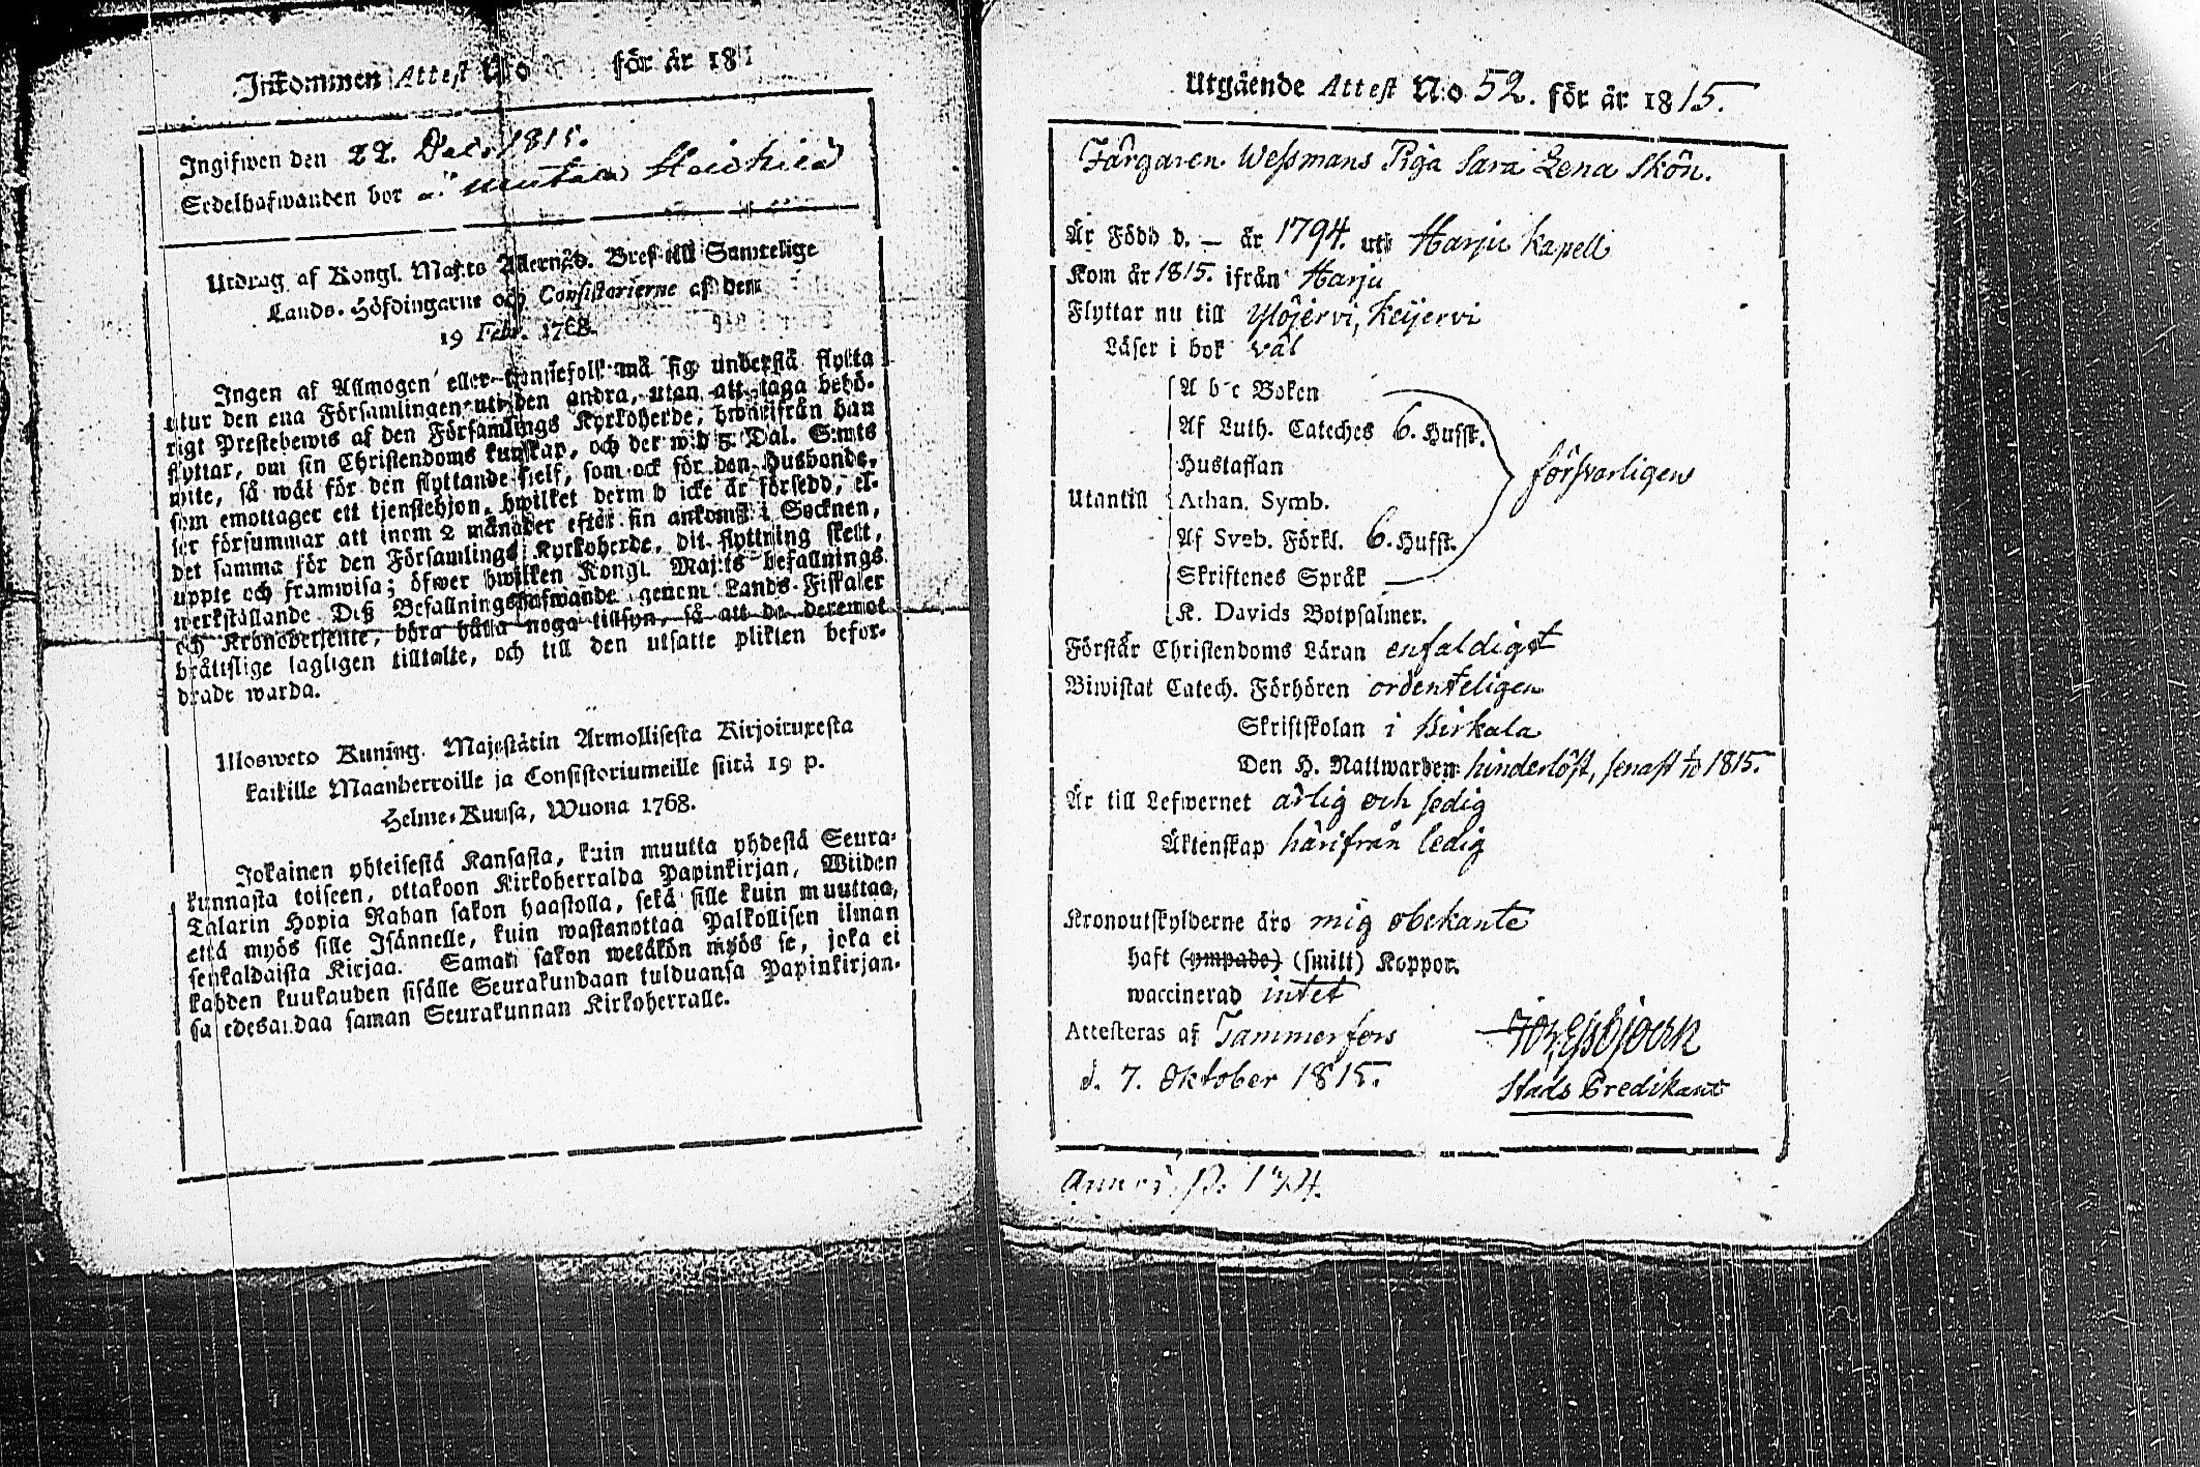 Inkommen Attest N:o för år 181
Ingifwen den 22. Dec. 1815.
Sedelhafwanden bor
Utdrag af Kongl. Maj:ts Allernåd. Bref till Samtelige
Lands-Höfdingarne och Consistorierne af dem
19 Febr. 1768.
Ingen af Allmogen eller tjenstefolk må sig understå flytta
utur den ena Församlingen uti den andra, utan att taga behö-
rigt Prestebewis af den Församlings Kyrkoherde, hwarifrån han
flyttar, om sin Christendoms kunskap, och det wid 5 Dal. S:mts
wite, så wäl för den flyttande sielf, som ock för den Husbonde,
som emottager ett tjenstehjon, hwilket dermed icke är försedd, el-
ler försummar att inom 2 månader efter sin ankomst i Socknen,
det samma för den Församlings Kyrkoherde, dit flyttning skett,
uppte och framwisa; öfwer hwilken Kongl. Maj:ts befallnings
werkställande Deß Befallningshafwande genom Lands-Fiskaler
och Kronobetjente, böra hålla noga tillsyn, så att de deremot
bråttslige lagligen tilltalte, och till den utsatte plikten befor-
drade warda.
Ulosweto Kuning. Majestätin Armollisesta Kirjoituxesta
kaikille Maanherroille ja Consistoriumeille siitä 19 p.
Helme-Kuusa, Wuona 1768.
Jokainen yhteisestä Kansasta, kuin muutta yhdestä Seura-
kunnasta toiseen, ottakoon Kirkoherralda Papinkirjan, Wiiden
Talarin Hopia Rahan sakon haastolla, sekä sille kuin muuttaa,
että myös sille Isännelle, kuin wastanottaa Palkollisen ilman
senkaldaista Kirjaa. Saman sakon wetäkön myös se, joka ei
kahden kuukauden sisälle Seurakundaan tulduansa Papinkirjan-
sa edesandaa saman Seurakunnan Kirkoherralle.
Utgående Attest N:o 52. för år 1815.
Färgaren Weßmans Piga Sara Lena Skön.
Är Född d. – år 1794. uti Harju Kapell
Kom år 1815. ifrån Harju
Flyttar nu till Ylöjervi, Keijervi
Läser i bok väl
A b c Boken
Af Luth. Cateches 6. Hufst.
Hustaflan
Utantill Athan. Symb.
försvarligen
Af Sveb. Förkl. 6. Hufst.
Skriftenes Språk –
K. Davids Botpsalmer.
Förstår Christendoms Läran enfaldigt
Biwistat Catech. Förhören ordenteligen
Skriftskolan i Birkala
Den H. Nattwarden hinderlöst, senast 1815.
Är till Lefwernet ärlig och sedig
Äktenskap härifrån ledig
Kronoutskylderne äro mig obekante
haft (ympade) (smitt) Koppor.
waccinerad intet
Attesteras af Tammerfors
d. 7. Oktober 1815.
Stads Predikant